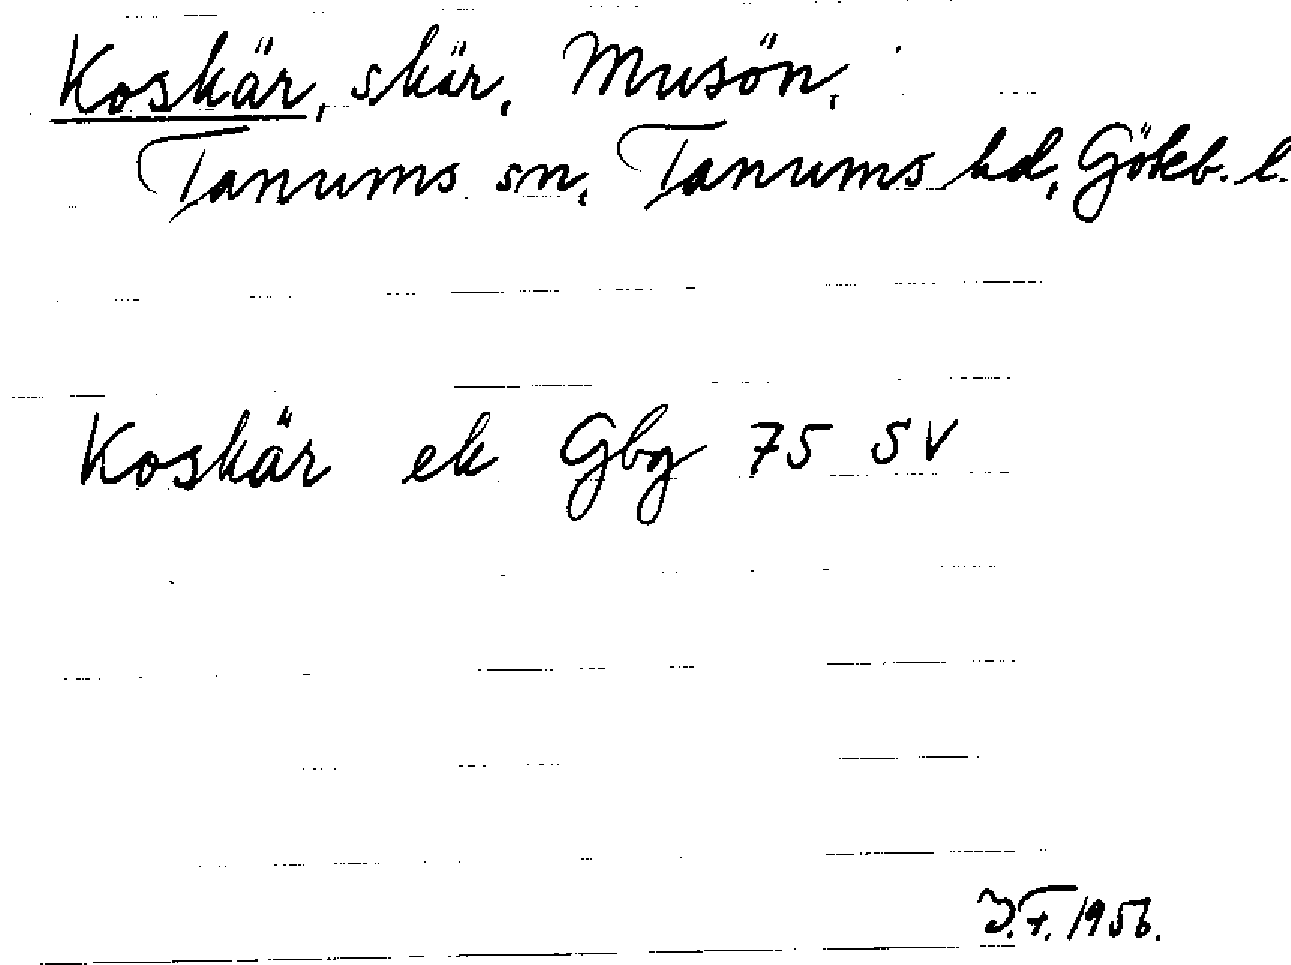 Koskär, skär, Musön,
Tanums sn, Tanums hd, Göteb. l.
Koskär ek Gbg 75 SV
J.F. 1956.